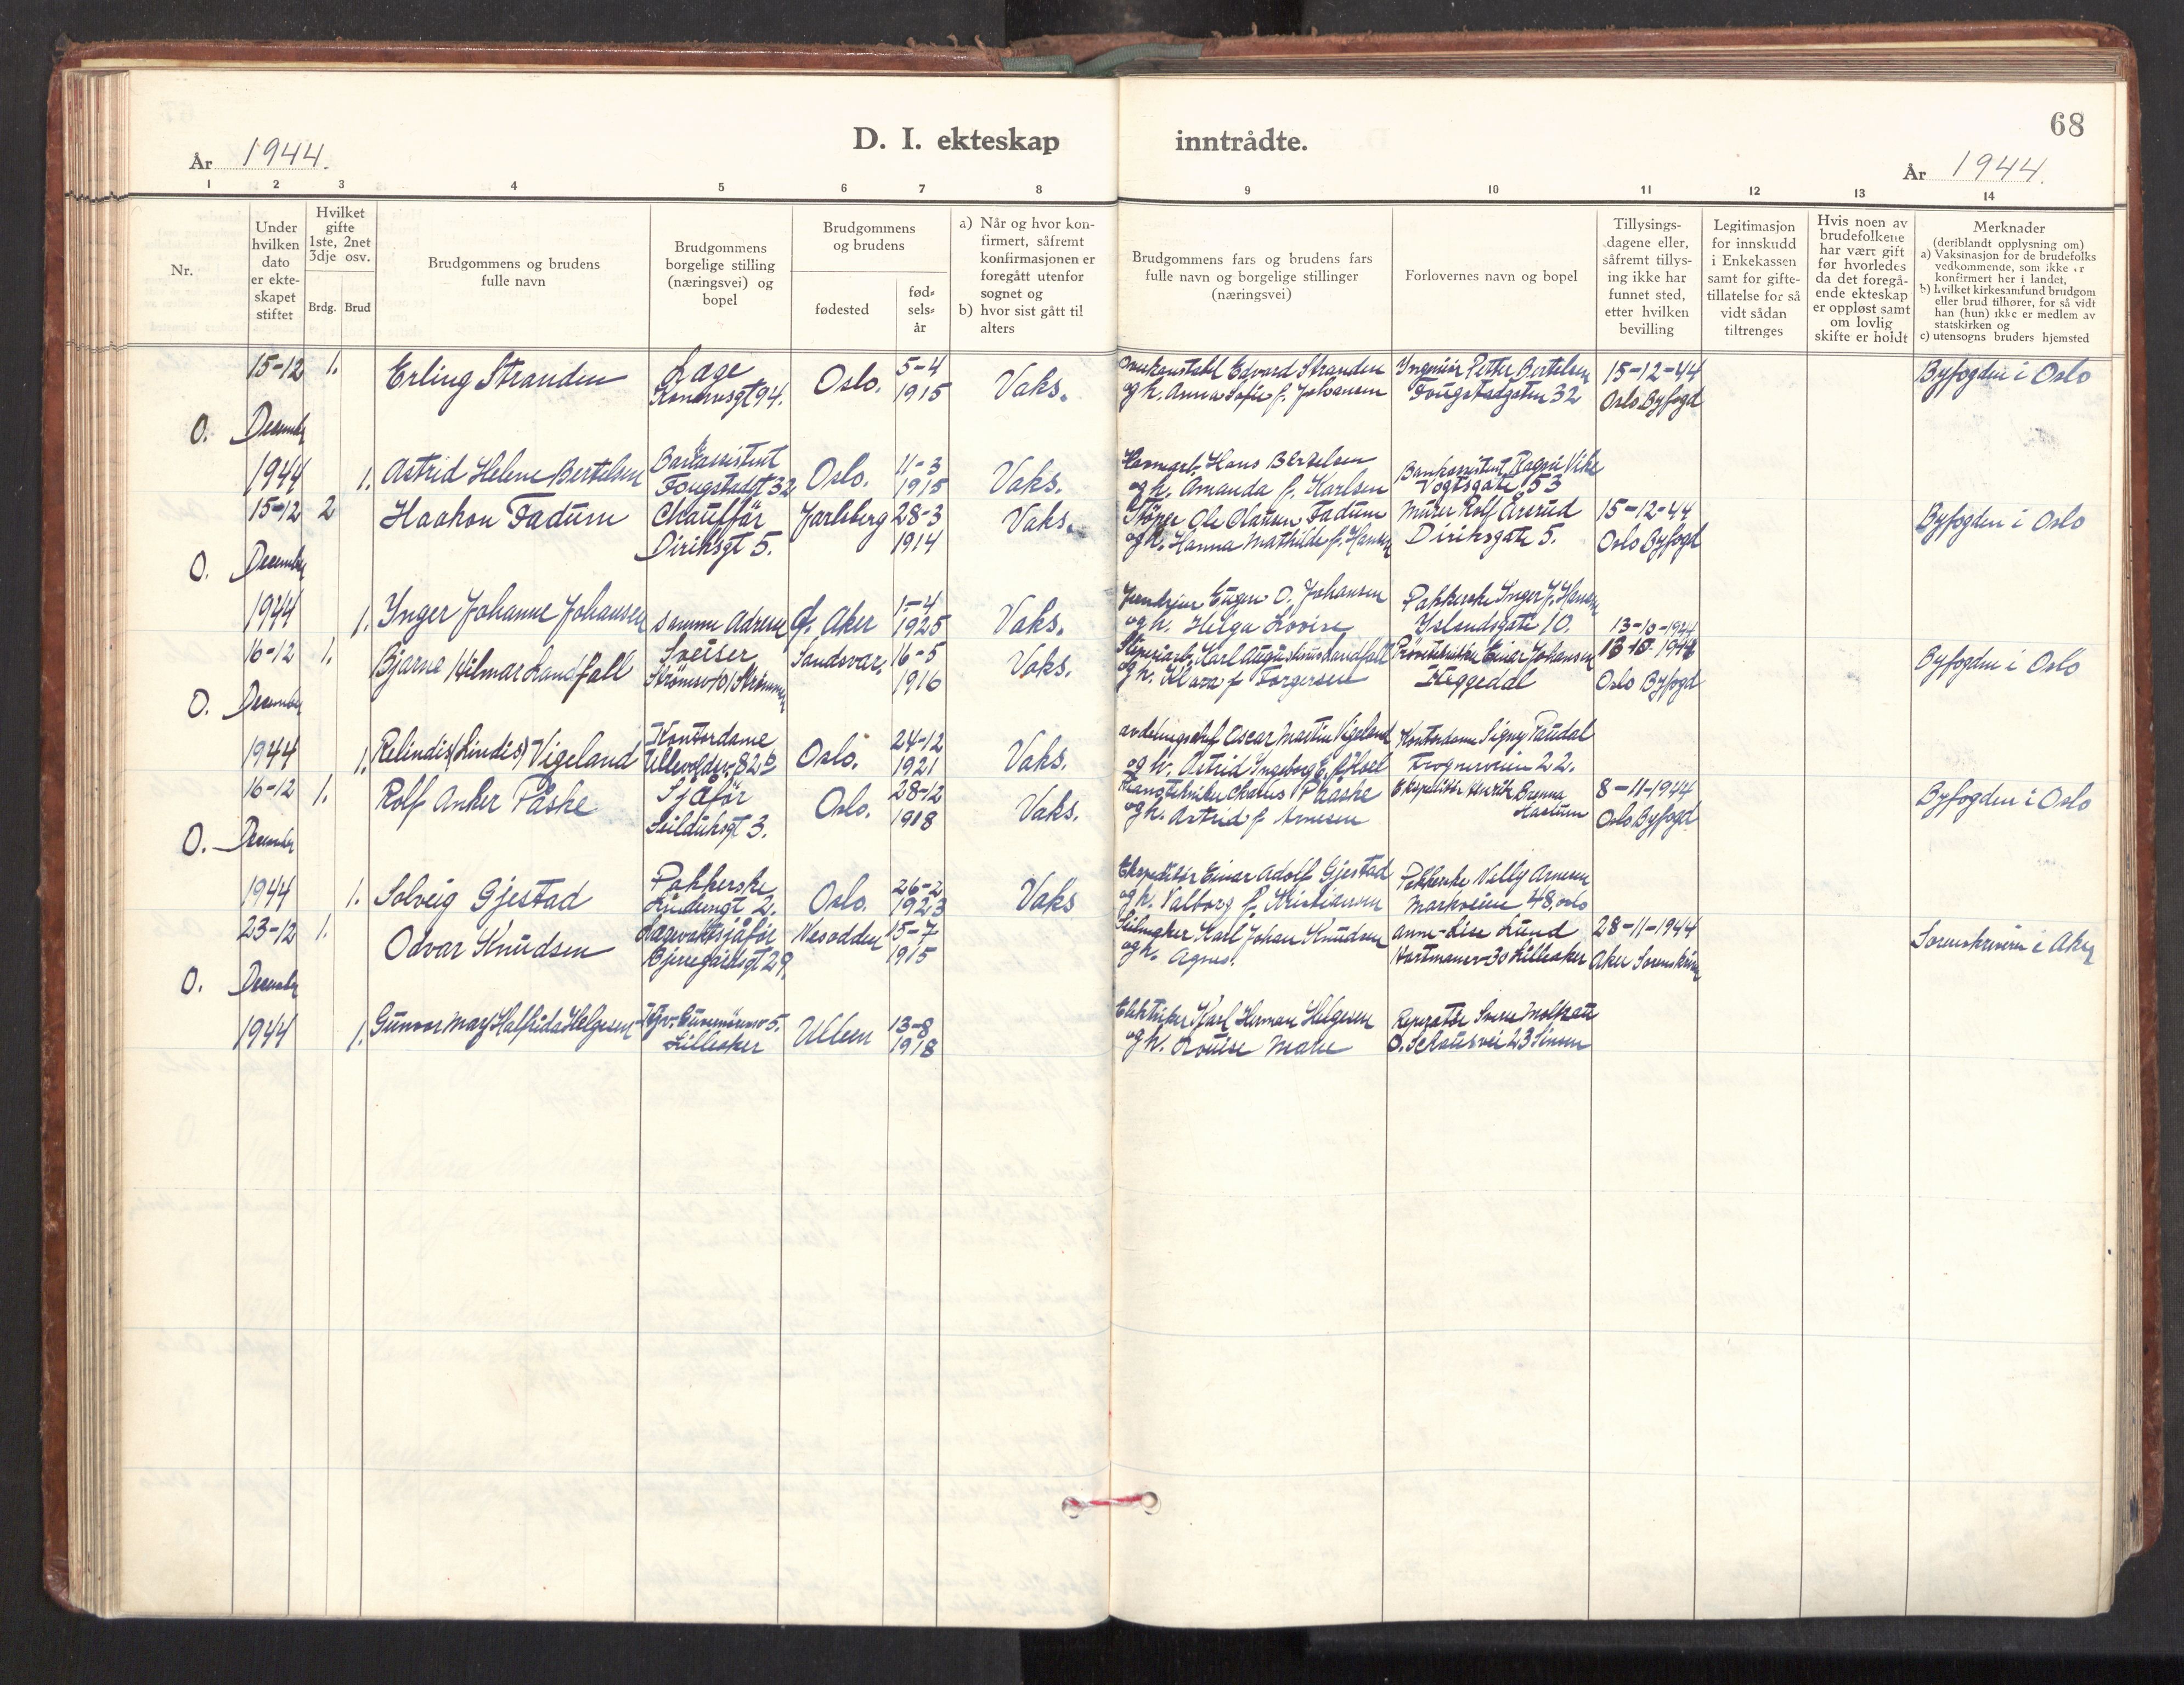 D. I. ekteskap inntrådte.
68
År 1944.
År 1944.
1 2 3 4 5 6 7 8 9 10 11 12 13 14
Nr.
Under hvilken dato er ekte-skapet stiftet
Hvilket gifte 1ste, 2net 3dje osv.
Brdg. Brud
Brudgommens og brudens fulle navn
Brudgommens borgelige stilling (næringsvei) og bopel
Brudgommens og brudens
fødested
fød-sels-år
a) Når og hvor kon-firmert, såfremt konfirmasjonen er foregått utenfor sognet og
b) hvor sist gått til alters
Brudgommens fars og brudens fars fulle navn og borgelige stillinger (næringsvei)
Forlovernes navn og bopel
Tillysings-dagene eller, såfremt tillys-ing ikke har funnet sted, etter hvilken bevilling
Legitimasjon for innskudd i Enkekassen samt for gifte-tillatelse for så vidt sådan tiltrenges
Hvis noen av brudefolkene har vært gift før hvorledes da det foregå-ende ekteskap er oppløst samt om lovlig skifte er holdt
Merknader
(deriblandt opplysning om)
a) Vaksinasjon for de brudefolks vedkommende, som ikke er konfirmert her i landet,
b) hvilket kirkesamfund brudgom eller brud tilhører, for så vidt han (hun) ikke er medlem av statskirken og
c) utensogns bruders hjemsted
15-12 1. Erling Stranden Læge Oslo. 5-4 Vaks. Edvard Stranden Ingeniør Petter Bertelsen 15-12-44 Byfogden i Oslo
94. 1915 og h. Anna Sofie f. Johansen Fougstadgaten 32 Oslo Byfogd
O. December
1944 1. Astrid Helene Bertelsen Oslo. 11-3 Vaks. Hans Bertelsen Bankassistent Ragni Vike
Fougstadgt 32 1915 og h. Amanda f. Karlsen Vogtsgate 53
15-12 2 Haakon Fadum Chauffør Jarlsberg 28-3 Vaks. Støper Ole Olausen Fadum Murer Rolf Årsrud 15-12-44 Byfogden i Oslo
Diriksgt 5. 1914 og h. Hanna Mathilde f. Hansen Diriksgate 5. Oslo Byfogd
O. December
1944 1. Inger Johanne Johansen samme Adresse Aker 1-4 Vaks. Eugen O. Johansen Pakkerske Inger J. Hansen
1925 og h. Helga Lovise Islandsgate 10. 13-10-1944
16-12 1. Bjarne Hilmar Landfall Sveiser Sandsvær. 16-5 Vaks. Karl Augustinus Landfall Einar Johansen Byfogden i Oslo
1916 og h. Klara f. Torgersen Heggedal Oslo Byfogd
O. December
1944 1. Relindis (Lindis) Vigeland Kontordame Oslo. 24-12 Vaks. Oscar Martin Vigeland Kontordame Signy Paudal
1921 og h. Astrid Ingeborg Frognerveien 22.
16-12 1. Rolf Anker Påske Sjåfør Oslo. 28-12 Vaks. Påaske Henrik 8-11-1944 Byfogden i Oslo
Seilduksgt 3. 1918 og h. Astrid f. Arnesen Oslo Byfogd
O. December
1944 1. Solveig Gjestad Pakkerske Oslo. 26-2 Vaks Ekspeditør Einar Adolf Gjestad Pakkerske Vally Arnesen
2. 1923 og h. Valborg f. Kristiansen Markveien 48, Oslo
23-12 1. Odvar Knudsen Nesodden 15-7 Seilmaker Karl Johan Knudsen Anne-Lise Lund 28-11-1944 Sorenskriveren i Aker
Bjerregårdsgt 29. 1915 og h. Agnes. 30 Lilleaker Aker Sorenskriver
O. December
1944 1. Gunvor May Halfrida Helgesen 5. Ullern 13-8 Elektriker Karl Herman Helgesen Reperatør
Lilleaker 1918 og h. Louise Marie O. Schous vei 23 Sinsen